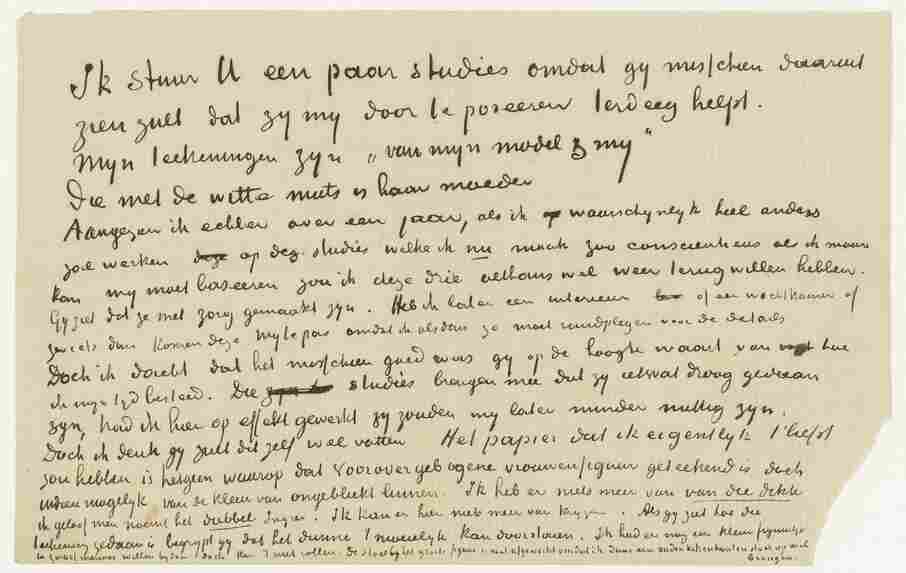 Ik stuur U een paar studies omdat gy misschien daaruit
zien zult dat zy my door te poseeren terdeeg helpt.
Myn teekeningen zyn „van myn model & my"
Die met de witte muts is haar moeder
Aangezien ik echter over een jaar, als ik waarschynlyk heel anders
zal werken op deze studies welke ik nu maak zoo consciencieus als ik maar
kan my moet baseeren zou ik deze drie althans wel weer terug willen hebben.
Gy ziet dat ze met zorg gemaakt zyn. Heb ik later een interieur of een wachtkamer of
zoo iets dan komen deze my te pas omdat ik alsdan ze moet raadplegen voor de details
Doch ik dacht dat het misschien goed was gy op de hoogte waart van hoe
ik myn tyd besteed. Die studies brengen mee dat zy ietwat droog gedaan
zyn, had ik hier op effekt gewerkt zy zouden my later minder nuttig zyn.
Doch ik denk gy zult dit zelf wel vatten Het papier dat ik eigentlyk 't liefst
zou hebben is hetgeen waarop dat voorovergebogene vrouwenfiguur geteekend is doch
indien mogelyk van de kleur van ongebleekt linnen. Ik heb er niets meer van van die dikte
ik geloof men noemt het dubbel Ingres. Ik kan er hier niets meer van krygen. Als gy ziet hoe die
teekening gedaan is begrypt gy dat het dunne 't moeielyk kan doorstaan. Ik had er nog een klein figuurtje
in zwart merinos willen by doen doch kan 't niet rollen. De stoel by het groote figuur is niet afgewerkt omdat ik daar een ouden eikenhouten stoel op wil
brengen.